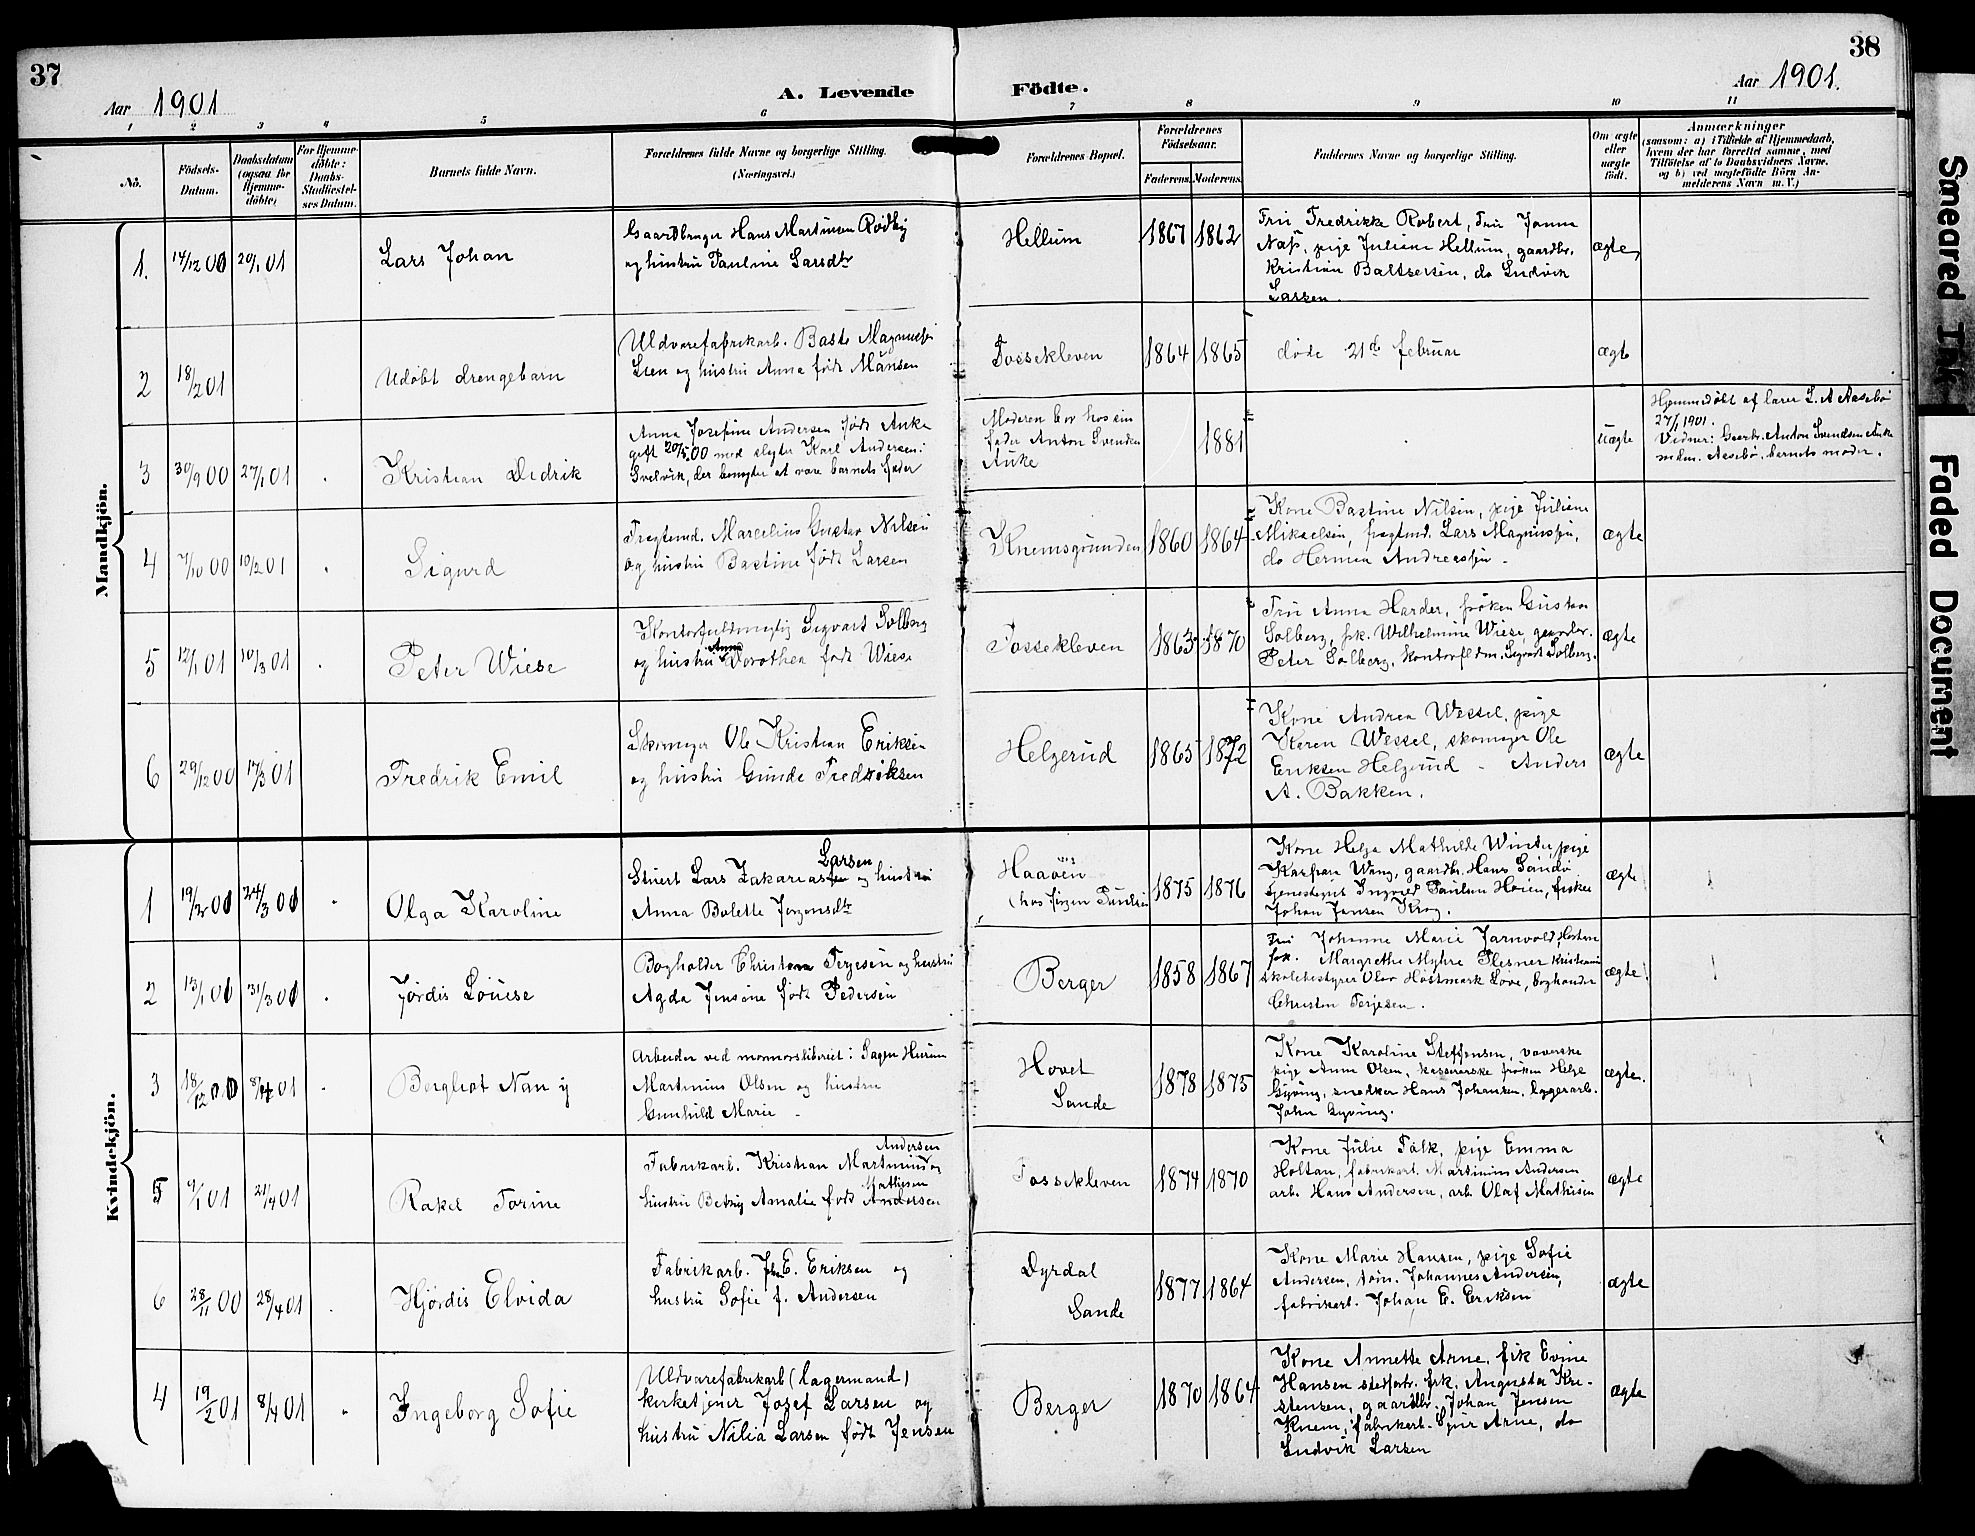 37
38
Aar 1901
A. Levende
Födte.
Aar 1901.
1 2 3 4 5 6 7 8 9 10 11
Nö.
Födsels-
Datum.
Daabsdatum
(ogsaa for
Hjemme-
döbte)
For Hjemme-
döbte:
Daabs-
Stadfæstel-
ses Datum.
Barnets fulde Navn.
Forældrenes fulde Navne og borgerlige Stilling.
(Næringsvei.)
Forældrenes Bopæl.
Forældrenes
Födselsaar.
Faderens.
Moderens.
Faddernes Navne og borgerlige Stilling.
Om ægte
eller
uægte
födt.
Anmærkninger
(saasom: a) i Tilfælde af Hjemmedaab,
hvem der har forrettet samme, med
Tilföielse af to Daabsvidners Navne.
og b) ved uægtefödte Börn An-
melderens Navn m. V.)
Mandkjön.
1.
14/12 00
20/1 01
Lars Johan
Gaardbruger Hans Martinsen Rödby
og hustru Pauline Larsdtr
Hellum
1867
1862
Fru Fredrikke Robert, Fru Janna
Næss, pige Juliane Hellum, gaardbr.
Kristian Baltsersen, do Ludvik
Larsen.
ægte
2
18/2 01
Udöbt drengebarn
Uldvarefabrikarb. Bast. Magnussen
Lien og hustru Anna født Månsen
Fossekleven
1864
1865
døde 21de februar
ægte
3
30/9 00
27/1 01
Kristian Dedrik
Anna Josefine Andersen født Anke
gift 20/5 00 med slagter Karl Andersen i
Svelvik, der benegter at være barnets fader
Moderen bor hos sin
fader Anton Svendsen
Anke
1881
Uægte
Hjemmedöbt af lærer L. A. Aasebö
27/1 1901.
Vidner: Gaardbr. Anton Svendsen Anke
mdm. Aasebö, barnets moder.
4
7/10 00
10/2 01
Sigurd
Fragtemd. Marcelius Gustav Nilsen
og hustru Bastine født Larsen
Knemsgrunden
1860
1864
Kone Bastine Nilsen, pige Juliane
Mikaelsen, fragtmd. Lars Magnussen,
do Herman Andreassen.
ægte
5
12/1 01
10/3 01
Peter Wiese
Kontorfuldmægtig Sigvart Solberg
og hustru Anna Dorothea født Wiese
Fossekleven
1863
1870
Fru Anna Harder, fröken Gustava
Solberg, frk. Wilhelmine Wiese, gaardbr.
Peter Solberg, kontorfldm. Sigvart Solberg.
ægte
6
29/12 00
17/3 01
Fredrik Emil
Skomager Ole Kristian Eriksen
og hustru Gunda Fredriksen
Helgerud
1865
1872
Kone Andrea Wessel, pige
Karen Wessel, skomager Ole
Eriksen Helgerud - Anders
A. Bakken.
ægte
Kvindekjön.
1
19/2 01
24/3 01
Olga Karoline
Larsen
Stuert Lars Zakariassen og hustru
Anna Bolette Jørgensdtr
Haaöen
(hos Jörgen Paulsen
1875
1876
Kone Helga Mathilde Winter, pige
Wang, gaardbr. Hans Sandö
Ingvald Paulsen Höien, fisker
Johan Jensen Krog.
ægte
2
13/1 01
31/3 01
Jørdis Louise
Bogholder Christen Terjesen og hustru
Agda Jensine født Pedersen
Berger
1858
1867
Fru Johanne Marie Jarnvold, Horten
frk. Margrethe Myhre Plesner Kristiania
skolebestyrer Olav Høstmark Love, boghander
Christen Terjesen.
ægte
3
18/12 00
8/4 01
Borghot Nan y
Arbeider ved i Sagen Hurum
Martinius Olsen og hustru
Gunhild Marie
Hovet
Sande
1878
1875
Kone Karoline Steffensen, væverske
pige Anna Olsen, kassererske fröken Helga
Gyving, snedker Hans Johansen, byggerarb.
John Gyving.
ægte.
5
9/1 01
21/4 01
Rakel Torine
Andersen
Fabrikarb. Kristian Martinius og
Mathisen
hustru Betsy Amalie født Andersen
Fossekleven
1874
1870
Kone Julie Falk, pige Emma
Holtan, fabrikarb. Martinius Andersen
arb. Hans Andersen, arb. Olaf Mathisen
ægte
6
28/11 00
28/4 01
Hjørdis Elvida
Fabrikarb. Joh. E. Eriksen og
hustru Sofie f. Andersen
Dyrdal
Sande
1877
1864
Kone Marie Hansen, pige Sofie
Andersen, tøm. Johannes Andersen,
fabrikarb. Johan E. Eriksen
ægte
4
19/2 01
8/4 01
Ingeborg Sofie
Uldvarefabrikarb (lagermand)
kirketjener Josef Larsen og
hustru Nilia Larsen født Jensen
Berger
1870
1864
Kone Annette Arne, frk Evine
Hansen stedfortr. frk. Augusta Kri-
stensen, gaardbr. Johan Jensen
Knem, fabrikarb. Syver Arne, do
Ludvik Larsen
ægte
Smeared Ink
Faded Document